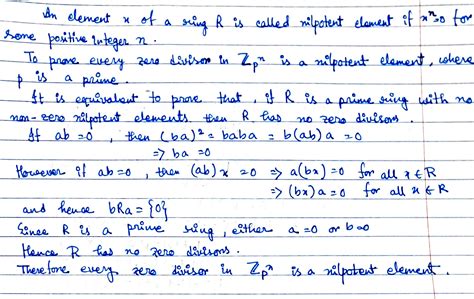 An element x of a ring R is called nilpotent element if xⁿ=0 for
some positive integer n.
To prove every zero divisor in ℤpⁿ is a nilpotent element, where
p is a prime.
It is equivalent to prove that, if R is a prime ring with no
non-zero nilpotent elements then R has no zero divisors.
If ab = 0, then (ba)² = baba = b(ab)a = 0
⇒ ba = 0
However if ab = 0, then (ab)x = 0 ⇒ a(bx) = 0 for all x ∈ R
⇒ (bx)a = 0 for all x ∈ R
and hence bRa = {0}
Since R is a prime ring, either a = 0 or b=0
Hence R has no zero divisors.
Therefore every zero divisor in ℤpⁿ is a nilpotent element.